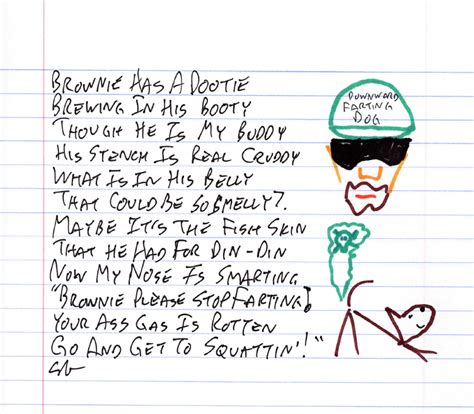 BROWNIE HAS A DOOTIE
BREWING IN HIS BOOTY
THOUGH HE IS MY BUDDY
HIS STENCH IS REAL CRUDDY
WHAT IS IN HIS BELLY
THAT COULD BE SO SMELLY?
MAYBE IT'S THE FISH SKIN
THAT HE HAD FOR DIN-DIN
NOW MY NOSE IS SMARTING
"BROWNIE PLEASE STOP FARTING!
YOUR ASS GAS IS ROTTEN
GO AND GET TO SQUATTIN'!"
DOWNWARD
FARTING
DOG